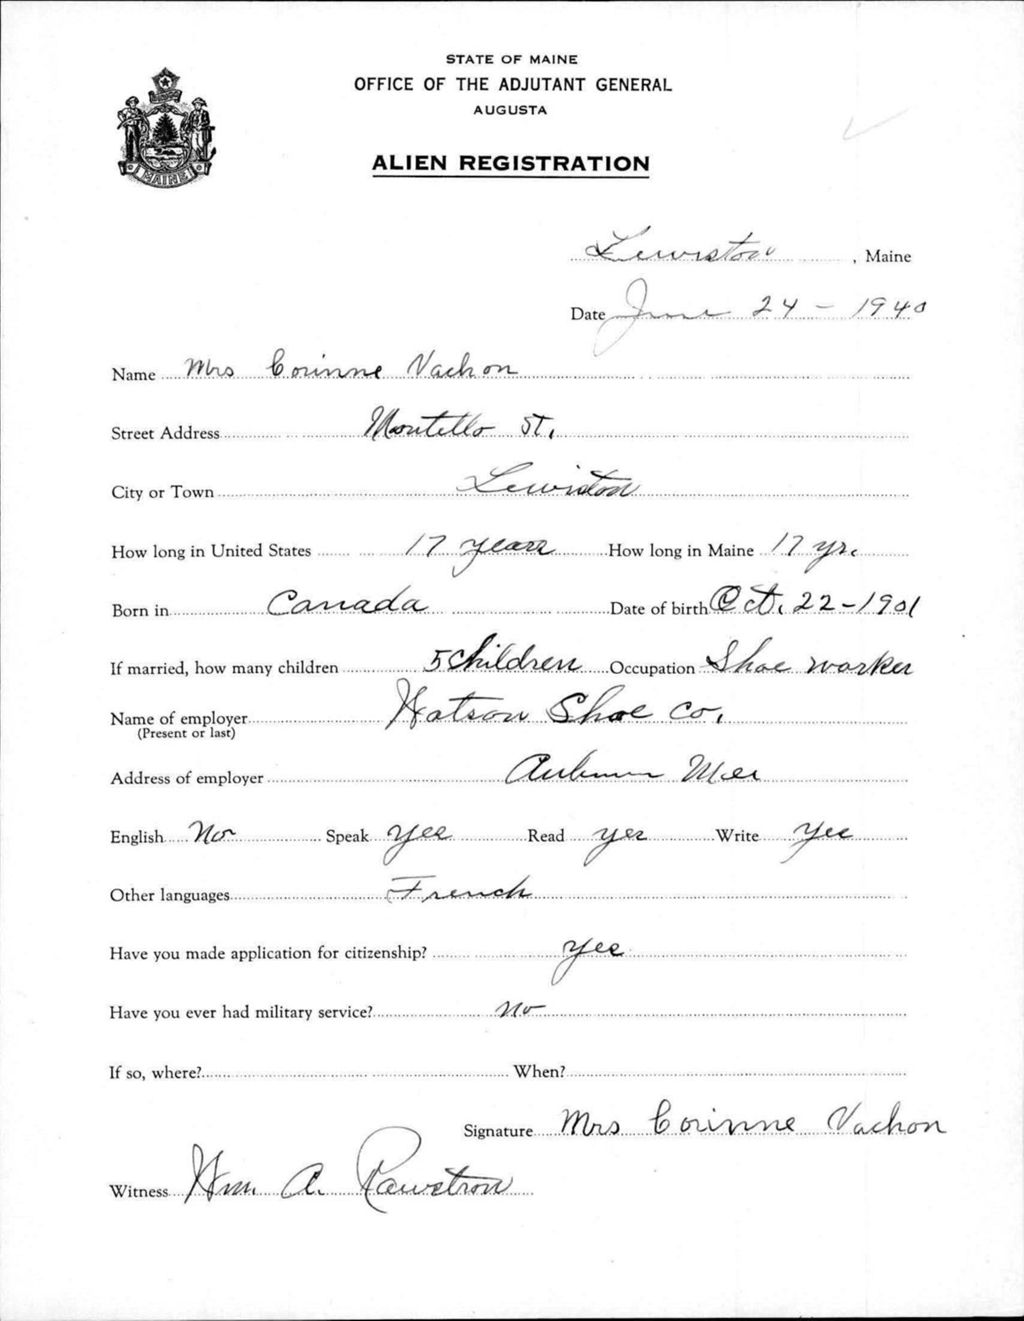 STATE OF MAINE
OFFICE OF THE ADJUTANT GENERAL
AUGUSTA
ALIEN REGISTRATION
MAINE
Lewiston, Maine
Date June 24 - 1940
Name Mrs Corinne Vachon
Street Address Montello St.
City or Town Lewiston
How long in United States 17 years How long in Maine 17 yr.
Born in Canada Date of birth Oct. 22-1901
If married, how many children 5 Children Occupation Shoe worker
Name of employer Watson Shoe Co.
(Present or last)
Address of employer Auburn Me
English No Speak yes Read yes Write Yes
Other languages French
Have you made application for citizenship? yes
Have you ever had military service? no
If so, where? When?
Signature Mrs Corinne Vachon
Witness Wm. A. Rawstron